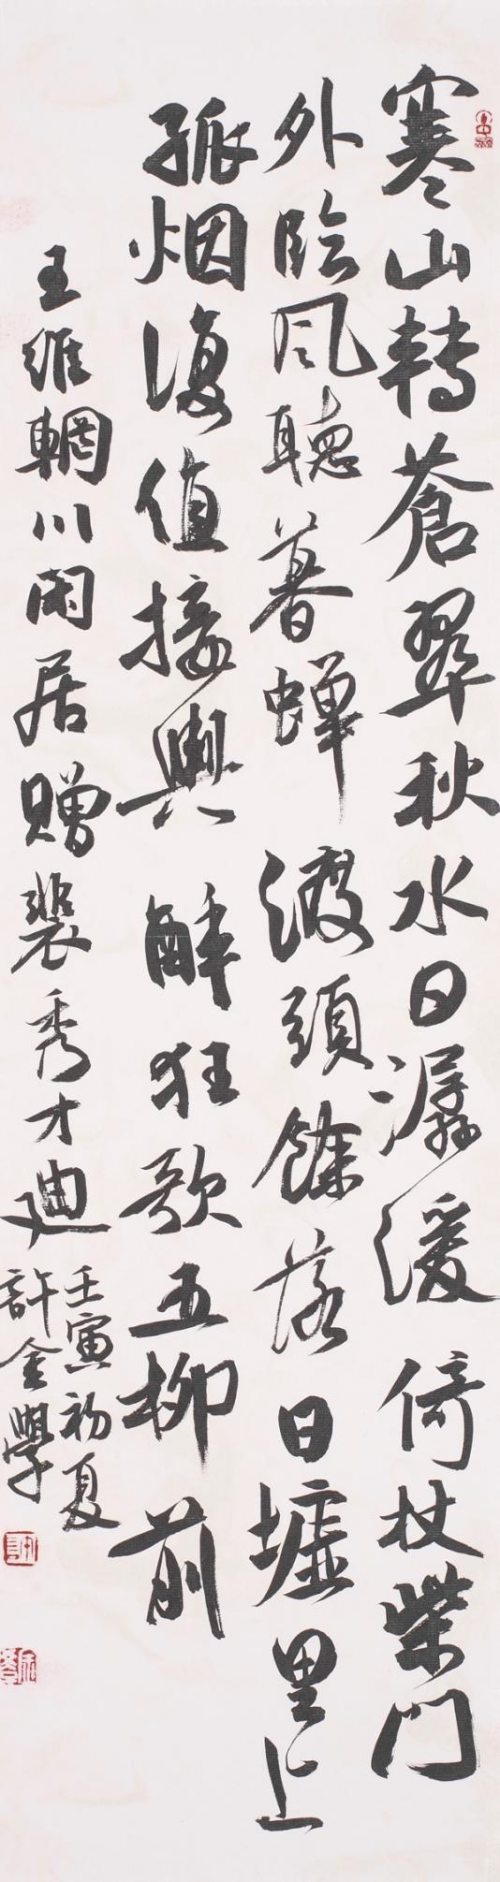 寒山轉蒼翠秋水日潺湲倚杖柴門
外臨风聽暮蝉渡頭餘落日墟里上
孤烟復值接輿醉狂歌五柳前
王维輞川闲居赠裴秀才迪
壬寅初夏
許金學